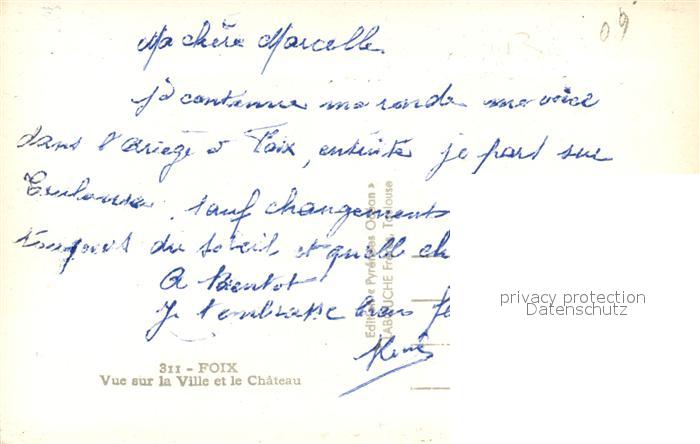 09
Ma chère Marcelle
je continue ma ronde me voici
dans l'Ariège à Foix, ensuite je part sur
Toulouse, sauf changements
toujours du soleil et quelle ch
A Bientot
Je t'embrasse bien fo
René
Edition « Pyrénées Océan »
LABOUCHE Frères, Toulouse
privacy protection
Datenschutz
311 - FOIX
Vue sur la Ville et le Château